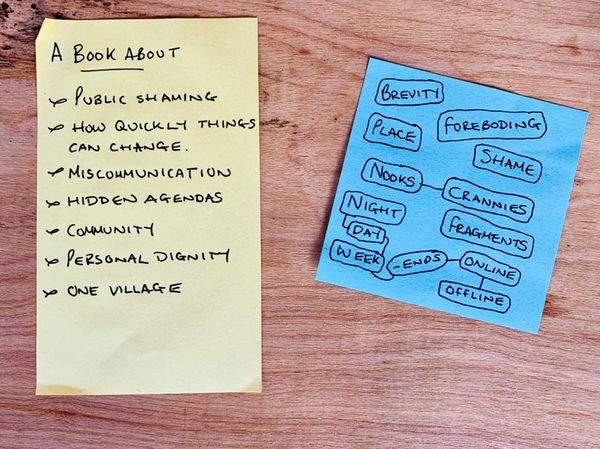 A BOOK ABOUT
PUBLIC SHAMING
HOW QUICKLY THINGS
CAN CHANGE.
MISCOMMUNICATION
HIDDEN AGENDAS
COMMUNITY
PERSONAL DIGNITY
ONE VILLAGE
BREVITY
PLACE
FOREBODING
SHAME
NOOKS
CRANNIES
NIGHT
DAY
WEEK
-ENDS
FRAGMENTS
ONLINE
OFFLINE